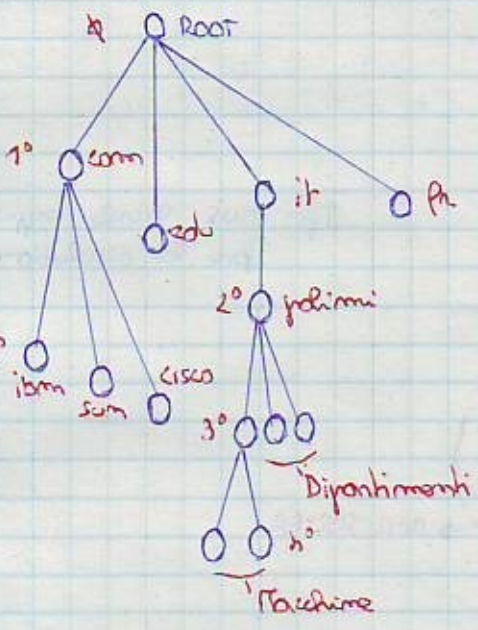 ROOT
1° com
it
fr
edu
2° polimi
ibm
sun
cisco
3°
Dipartimenti
4°
Macchine